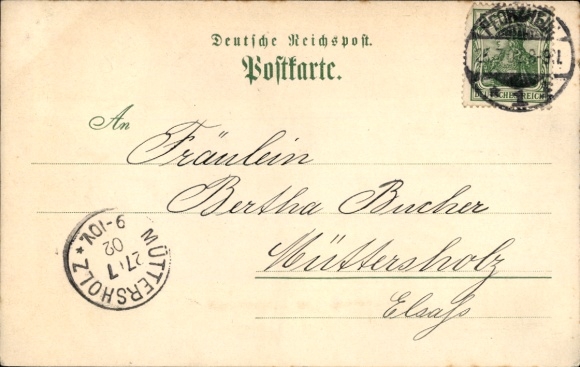 Deutsche Reichspost.
Postkarte.
PFORZHEIM
1
DEUTSCHES REICH
An
Fräulein
Bertha Bucher
Müttersholz
Elsaß
MÜTTERSHOLZ *
27 7
02
9-10V.